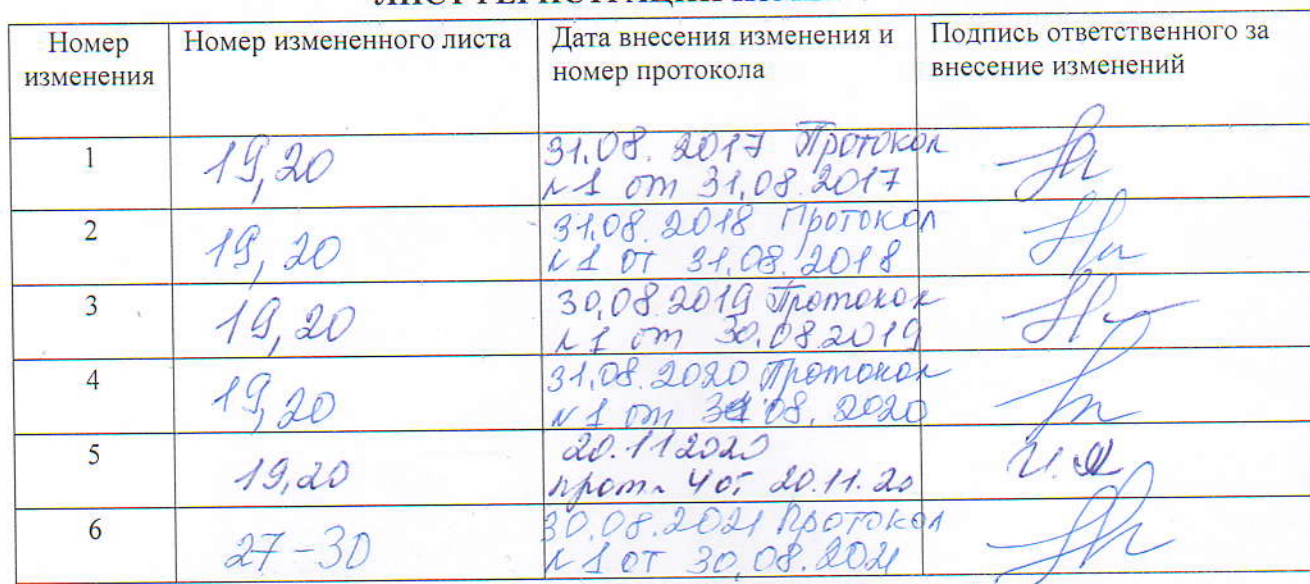 ЛИСТ РЕГИСТРАЦИИ
Номер изменения
Номер измененного листа
Дата внесения изменения и номер протокола
Подпись ответственного за внесение изменений
1
19,20
31.08. 2017 Протокол
№1 от 31.08.2017
2
19, 20
31.08. 2018 Протокол
№1 от 31.08.2018
3
19,20
30.08.2019 Протокол
№1 от 30.08.2019
4
19,20
31.08.2020 Протокол
№1 от 31.08.2020
5
19,20
20.11 2020
прот. 4 от 20.11.20
6
27-30
30.08.2021 Протокол
№1 от 30.08.2021